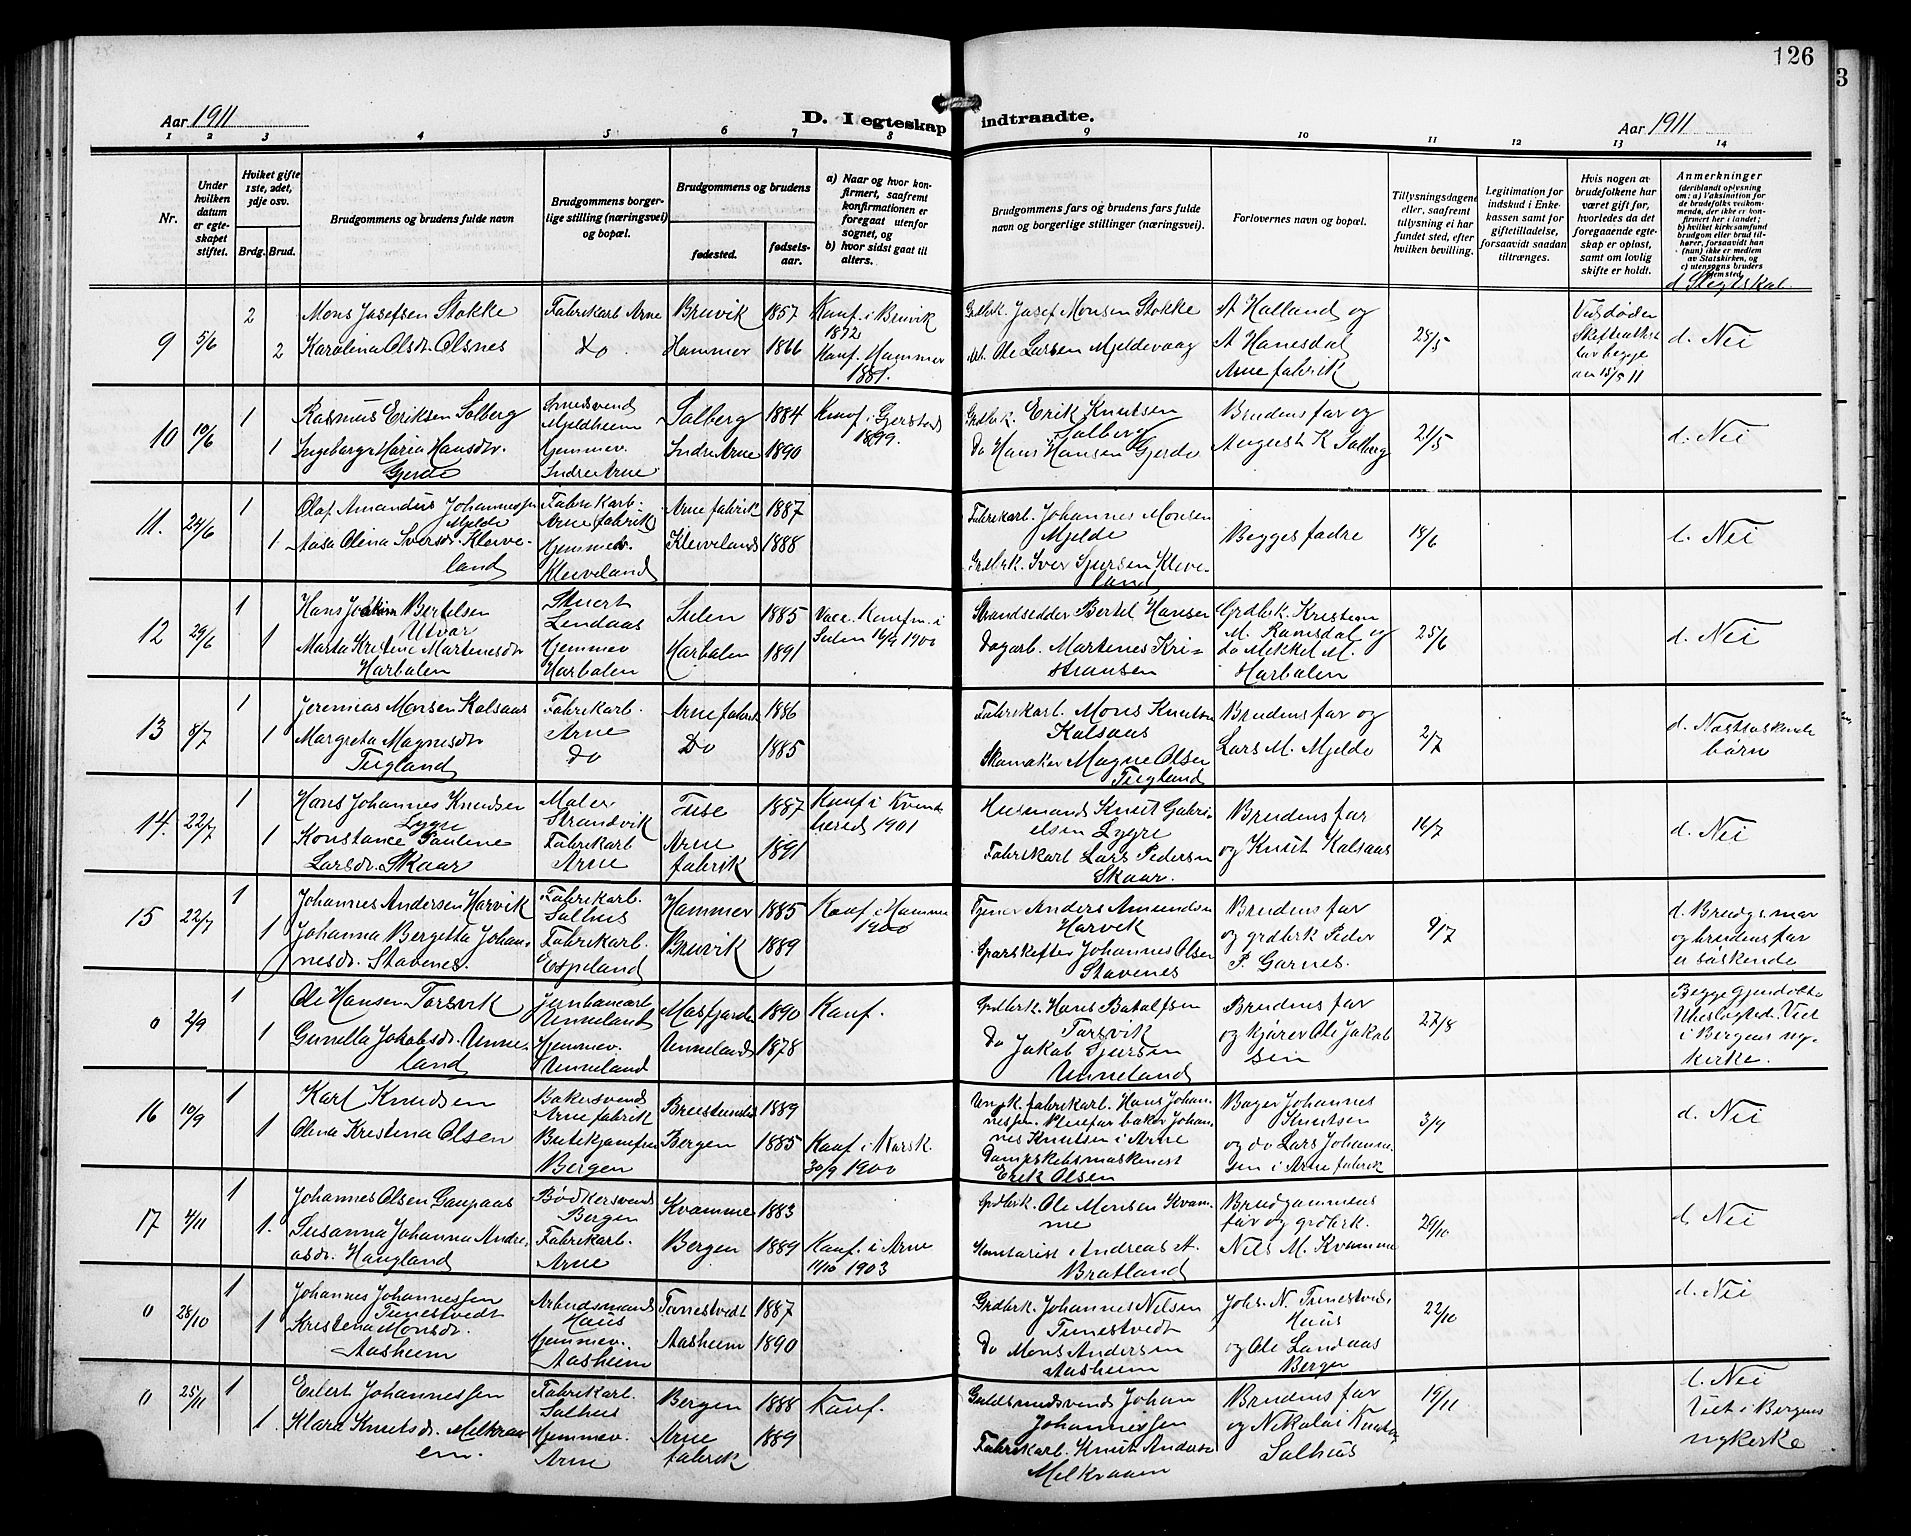 126
3
Aar 1911
D. I egteskap indtraadte.
Aar 1911
1 2 3 4 5 6 7 8 9 10 11 12 13 14
Nr.
Under hvilken datum er egteskapet stiftet.
Hvilket gifte 1ste, 2det, 3dje osv.
Brdg. Brud.
Brudgommens og brudens fulde navn
Brudgommens borgerlige stilling (næringsvei) og bopæl.
Brudgommens og brudens
fødested.
fødselsaar.
a) Naar og hvor konfirmert, saafremt konfirmationen er foregaat utenfor sognet, og
b) hvor sidst gaat til alters.
Brudgommens fars og brudens fars fulde navn og borgerlige stillinger (næringsvei).
Forlovernes navn og bopæl.
Tillysningsdagene eller, saafremt tillysning ei har fundet sted, efter hvilken bevilling.
Legitimation for indskud i Enkekassen samt for giftetilladelse, forsaavidt saadan tiltrænges.
Hvis nogen av brudefolkene har været gift før, hvorledes da det foregaaende egteskap er opløst, samt om lovlig skifte er holdt.
Anmerkninger
(deriblandt oplysning om: a) Vaksination for de brudefolks vedkommende, der ikke er konfirmert her i landet; b) hvilket kirkesamfund brudgom eller brud tilhører, forsaavidt han (hun) ikke er medlem av Statskirken, og c) utensogns bruders hjemsted.
d Slegtskab
9 5/6 2 Mons Josefsen Stokke Fabrikarb Arne Bruvik 1857 Konf. i Bruvik 1872 Grdbrk. Josef Monsen Stokke A Halland og 28/5 d. Nei
2 Karolina Olsdr. Olsnes Do. Hammer 1866 Konf. Hammer 1881. Ole Larsen Mjeldevaag A Hanesdal Arne fabrik
begge
an 15/5 11
10 10/6 1 Rasmus Eriksen Solberg Smedsvend Mjeldheim Solberg 1884 Konf. i Gjerstad 1899. Grdbrk. Erik Knutsen Solberg Brudens far og 21/5 d. Nei
1 Ingeborg Maria Hansdr. Gjerde Hjemmev. Indre Arne Indre Arne 1890 Do Hans Hansen Gjerde August K Solberg
11. 24/6 1 Olaf Amandus Johannessen Mjelde Fabrikarb. Arne fabrik Arne fabrik 1887 Fabrikarb. Johannes Monsen Mjelde Begges fædre 18/6 d. Nei
1 Aasa Olena Iversdr. Kleiveland Hjemmev. Kleiveland Kleiveland 1888 Grdbrk. Iver Sjursen Kleiveland
12 29/6 1 Hans Joakim Bertelsen Utvær Lendaas Sulen 1885 Vacc. Konfm. i Sulen 16/9 1900 Strandsidder Bertel Hansen Grdbrk. Kristen M. Ramsdal og 25/6 d. Nei
1 Marta Kristine Martinesdr Harbalen Hjemmev Harbalen Harbalen 1891 Dagarb. Martines Kristiansen do Mikkel M. Harbalen
13 8/7 1 Jeremias Monsen Kalsaas Fabrikarb. Arne Arne fabrik 1886 Fabrikarb. Mons Knutsen Kalsaas Brudens far og 2/7 d. Næstsøskende børn
1 Margreta Magnesdr Tugland Do Do 1885 Skomaker Magne Olsen Tugland Lars M. Mjelde
14. 22/7 1 Hans Johannes Knudsen Lygre Maler Strandvik Fuse 1887 Konf i Kvindhered 1901 Husmand Knut Gabrielsen Lygre Brudens far 16/7 d. Nei
1 Konstance Pauline Larsdr. Skaar Fabrikarb Arne Arne fabrik 1891 Fabrikarb Lars Pedersen Skaar. og Knut Kalsaas
15 22/7 1 Johannes Andersen Harvik Fabrikarb. Salhus Hammer 1885 Konf. i Hammer 1900 Tjener Anders Amundsen Harvik Brudens far 9/7 d. Brudg. mor
1 Johanna Bergetta Johannesdr. Stavenes. Fabrikarb. Espeland Bruvik 1889 Johannes Olsen Stavenes og grdbrk Peder P. Garnes. og brudens far er søskende
0 2/9 1 Ole Hansen Torsvik Jernbanearb Unneland Masfjorden 1890 Konf. Grdbrk. Hans Batalfsen Torsvik Brudens far 27/8 Begge gjendøbte
1 Gunella Jakobsdr. Unneland Hjemmev. Unneland Unneland 1878 Do Jakob Sjursen Unneland og kjører Ole Jakobsen Ubeslegtede. Viet i Bergens nykirke.
16 10/9 1 Karl Knudsen Bakersvend Arne fabrik 1889 Ungk. fabrikarb. Hans Johannessen. Pleiefar baker Johannes Knutsen i Arne Bager Johannes Knutsen 3/9 d. Nei
1 Olena Kristina Olsen Butikjomfru Bergen Bergen 1885 Konf i Korsk. 30/9 1900 Dampskibsmaskinist Erik Olsen og do Lars Johannesen i Arne fabrik
17 4/11 1 Johannes Olsen Gaupaas Bødkersvend Bergen Kvamme 1883 Grdbrk. Ole Monsen Kvamme Brudgommens far og grdbrk. 29/10 d. Nei
1. Susanna Johanna Andreasdr. Haugland Fabrikarb. Arne Bergen 1889 Konf. i Arne 11/10 1903 Kontorist Andreas A. Bratland Nils M. Kvamme
0 28/10 1 Johannes Johannessen Tunestvedt Arbeidsmand Haus Tunestvedt 1887 Grdbrk. Johannes Nilsen Tunestvedt Johs. N. Tunestvedt Haus 22/10 d. Nei
1 Kristina Monsdr. Aasheim Hjemmev. Aasheim Aasheim 1890 Do Mons Andersen Aasheim og Ole Landaas Bergen
0 25/11 1 Eilert Johannessen Fabrikarb. Salhus Bergen 1888 Konf. Guldsmedsvend Johan Johannessen Brudens far 19/11 d. Nei
1. Klara Knutsdr. Melkraaen. Hjemmev. Arne Arne fabrik 1889 Fabrikarb. Knut Andersen Melkraaen og Nikolai Knutsen Salhus Viet i Bergens nykirke